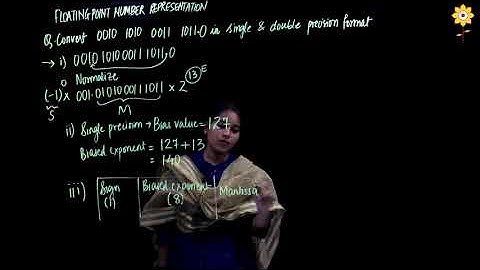 FLOATING POINT NUMBER REPRESENTATION
Q. Convert 0010 1010 0011 1011.0 in single & double precision format
→ i) 0010101000111011.0
Normalize
(-1)⁰ × 001.0101000111011 × 2¹³ E
S M
ii) Single precision → Bias value = 127
Biased exponent = 127 + 13
= 140
iii) Sign Biased exponent Mantissa
(1) (8)